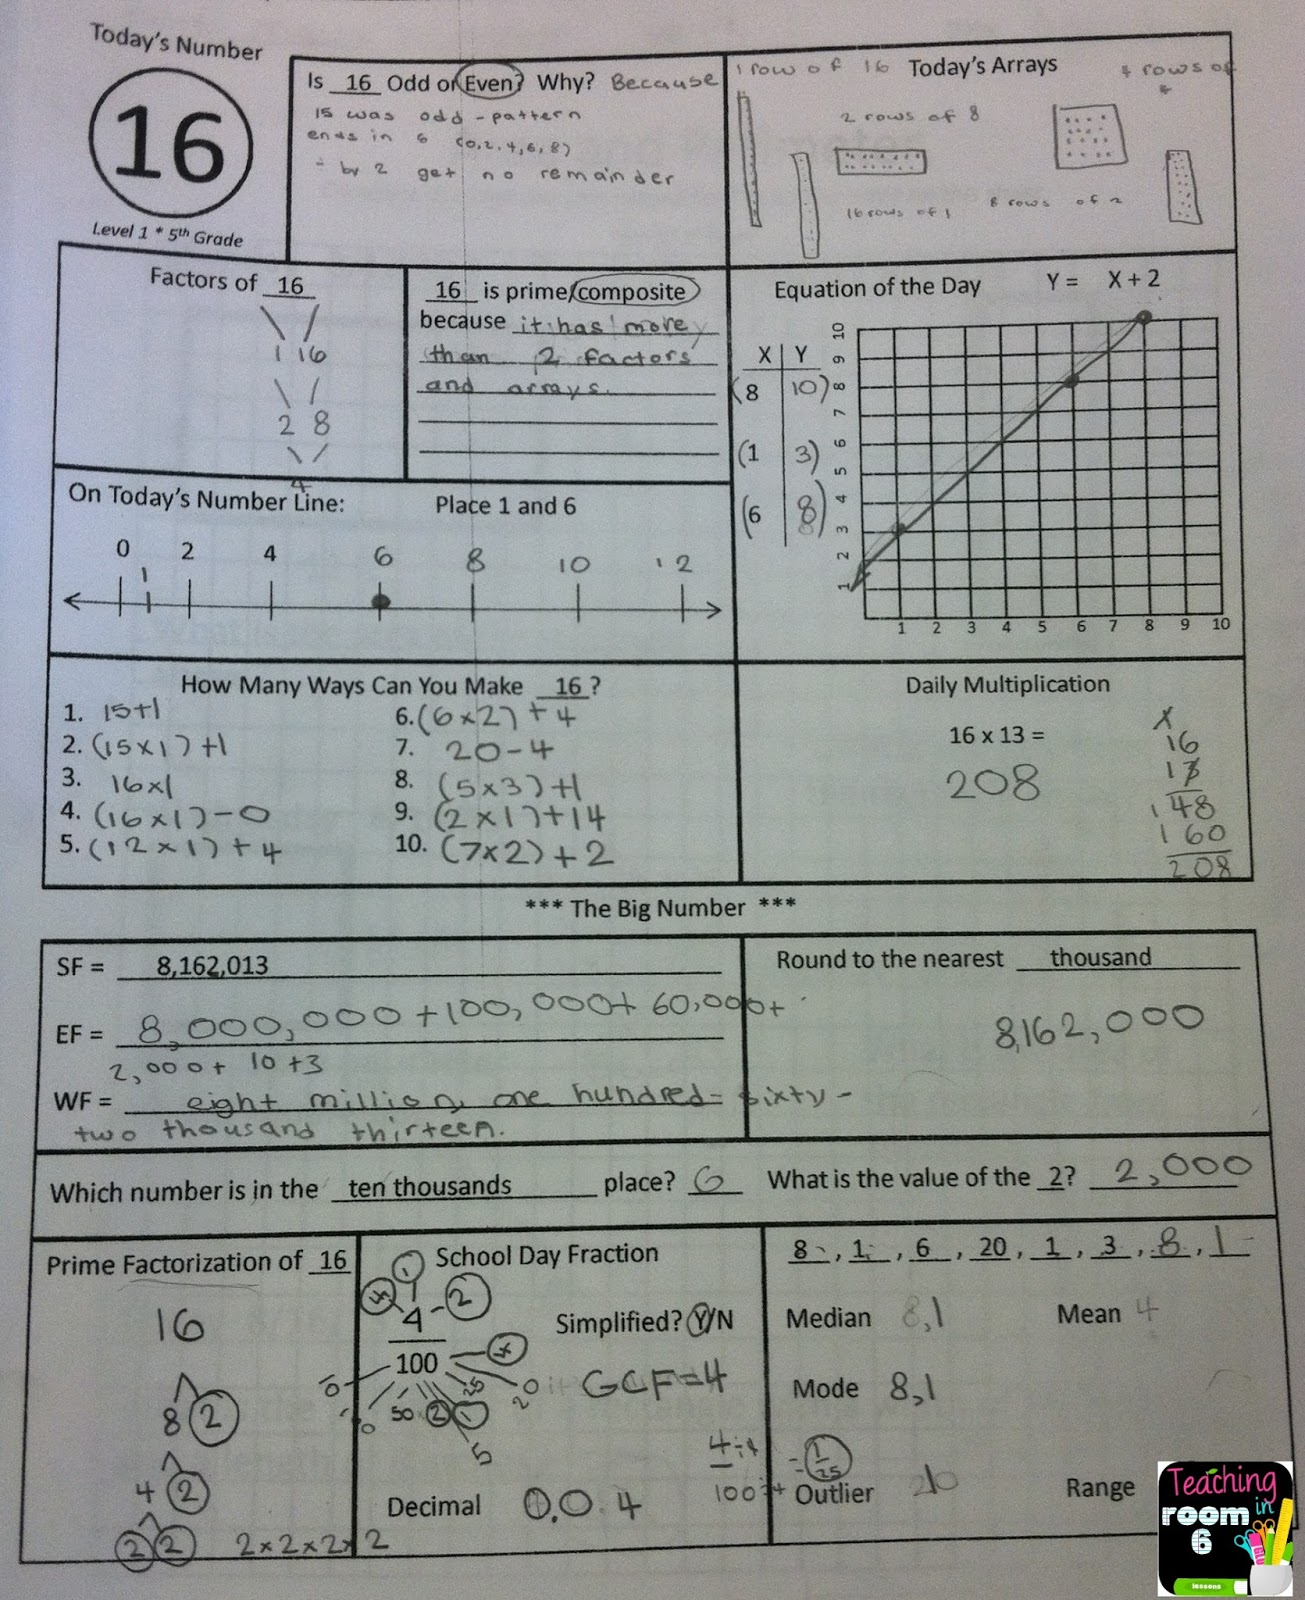 Today's Number
16
Level 1 * 5th Grade
Is 16 Odd or Even? Why? Because
15 was odd - pattern
ends in 6 (0,2,4,6,8)
÷ by 2 get no remainder
1 row of 16 Today's Arrays 4 rows of
4
2 rows of 8
16 rows of 1 8 rows of 2
Factors of 16
1 16
2 8
4
16 is prime/composite
because it has more
than 2 factors
and arrays.
Equation of the Day Y = X + 2
X Y
(8 10)
(1 3)
(6 8)
10
9
8
7
6
5
4
3
2
1
1 2 3 4 5 6 7 8 9 10
On Today's Number Line: Place 1 and 6
0 1 2 4 6 8 10 12
How Many Ways Can You Make 16?
1. 15+1
2. (15x1)+1
3. 16x1
4. (16x1)-0
5. (12x1)+4
6. (6x2)+4
7. 20-4
8. (5x3)+1
9. (2x1)+14
10. (7x2)+2
Daily Multiplication
16 x 13 =
208
x
16
13
148
160
208
*** The Big Number ***
SF = 8,162,013
EF = 8,000,000+100,000+60,000+
2,000+ 10+3
WF = eight million, one hundred-sixty-
two thousand thirteen.
Round to the nearest thousand
8,162,000
Which number is in the ten thousands place? 6 What is the value of the 2? 2,000
Prime Factorization of 16
16
8 2
4 2
2 2 2x2x2x2
School Day Fraction
1
4 4 2
100 4
10 50 2 1 25 20
5
Simplified? Y/N
GCF=4
4÷4 = 1/25
100÷4
Decimal 0.04
8, 1, 6, 20, 1, 3, 8, 1
Median 8,1 Mean 4
Mode 8,1
Outlier 20 Range
Teaching
in
room
6
lessons